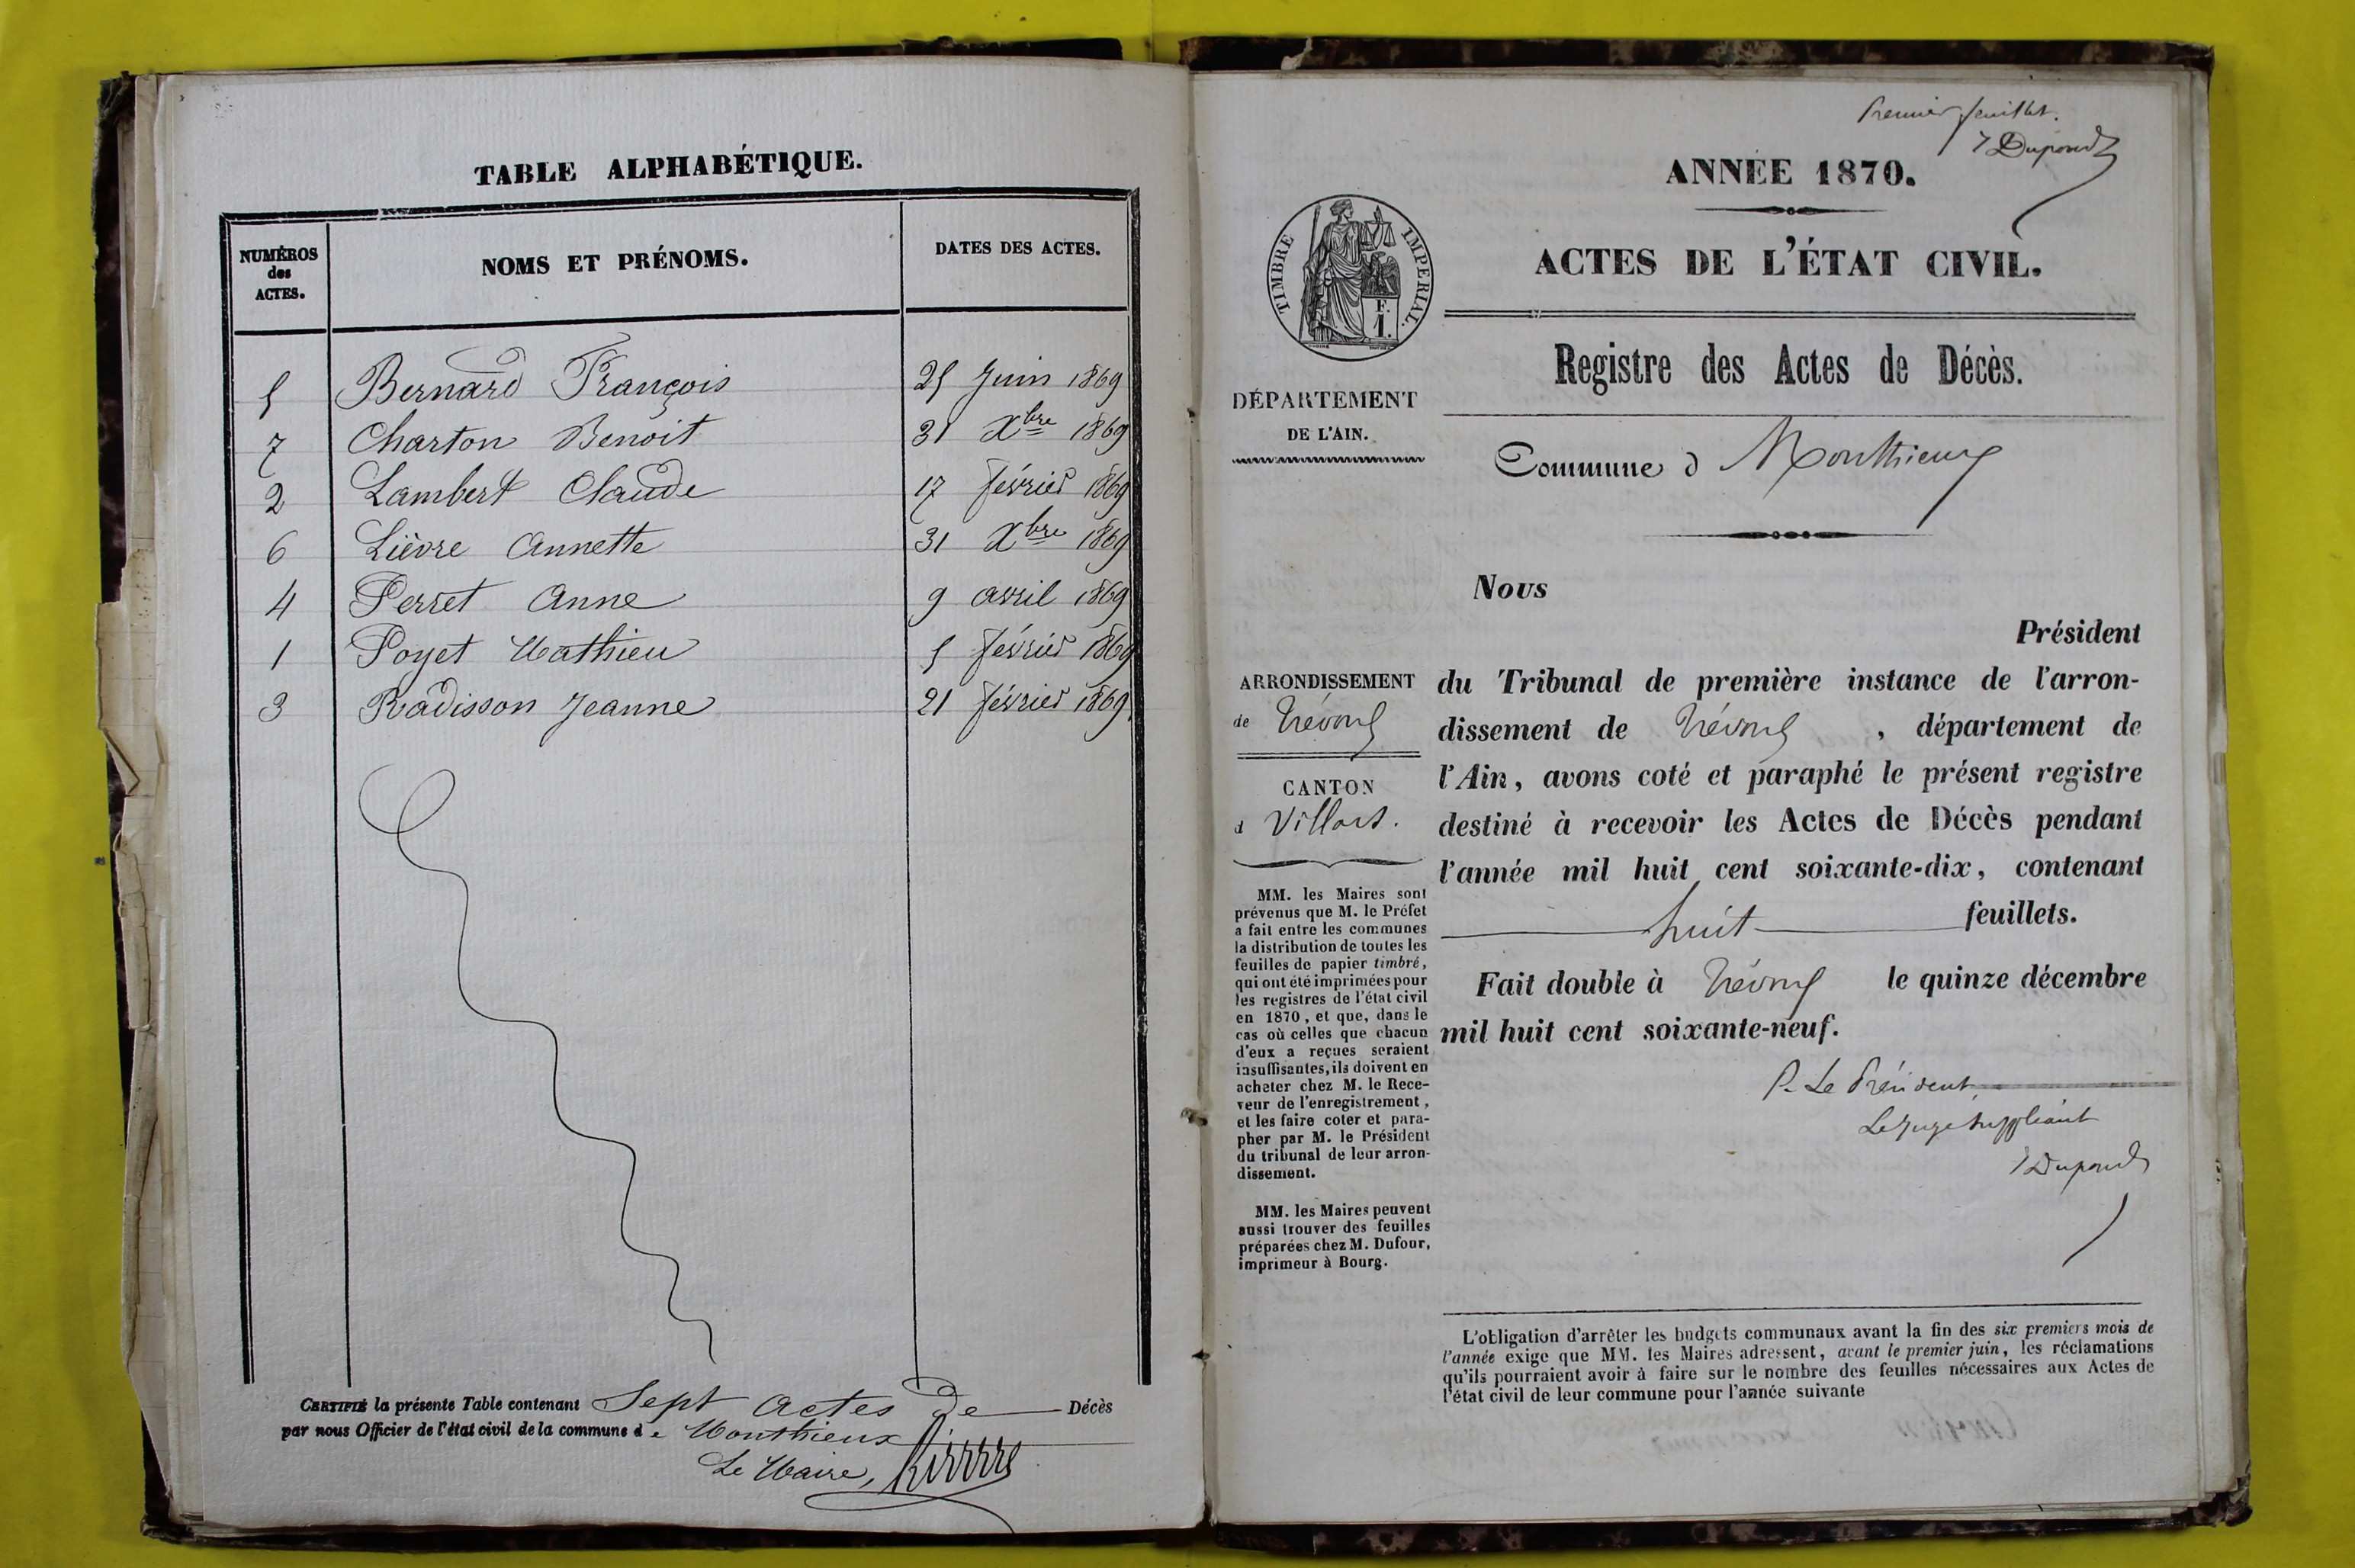 TABLE ALPHABÉTIQUE.
NUMÉROS des ACTES. NOMS ET PRÉNOMS. DATES DES ACTES.
5 Bernard François 25 Juin 1869
7 Charton Benoit 31 Xbre 1869
2 Lambert Claude 17 février 1869
6 Lièvre Annette 31 Xbre 1869
4 Perret Anne 9 avril 1869
1 Poyet Mathieu 5 février 1869
3 Radisson Jeanne 21 février 1869
CERTIFIÉ la présente Table contenant Sept Actes de Décès
par nous Officier de l'état civil de la commune de Monthieux
Le Maire,
Premier feuillet.
Dupond
ANNÉE 1870.
TIMBRE IMPERIAL.
F.
1.
ACTES DE L'ÉTAT CIVIL.
Registre des Actes de Décès.
DÉPARTEMENT
DE L'AIN.
Commune d Monthieux
Nous
Président
du Tribunal de première instance de l'arron-
dissement de Trévoux, département de
l'Ain, avons coté et paraphé le présent registre
destiné à recevoir les Actes de Décès pendant
l'année mil huit cent soixante-dix, contenant
huit feuillets.
Fait double à Trévoux le quinze décembre
mil huit cent soixante-neuf.
P. Le Président,
Le Juge suppléant
Dupond
ARRONDISSEMENT
de Trévoux
CANTON
d Villars.
MM. les Maires sont
prévenus que M. le Préfet
a fait entre les communes
la distribution de toutes les
feuilles de papier timbré,
qui ont été imprimées pour
les registres de l'état civil
en 1870, et que, dans le
cas où celles que chacun
d'eux a reçues seraient
insuffisantes, ils doivent en
acheter chez M. le Rece-
veur de l'enregistrement,
et les faire coter et para-
pher par M. le Président
du tribunal de leur arron-
dissement.
MM. les Maires peuvent
aussi trouver des feuilles
préparées chez M. Dufour,
imprimeur à Bourg.
L'obligation d'arrêter les budgets communaux avant la fin des six premiers mois de
l'année exige que MM. les Maires adressent, avant le premier juin, les réclamations
qu'ils pourraient avoir à faire sur le nombre des feuilles nécessaires aux Actes de
l'état civil de leur commune pour l'année suivante